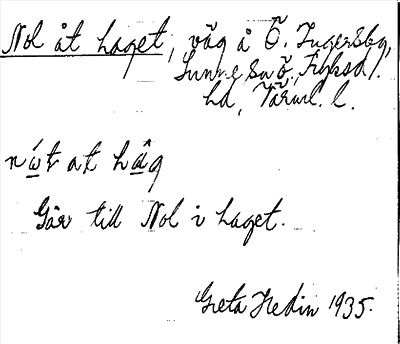 Nol åt haget, väg å Ö. Ingersby,
Sunne sn ö., Fryksd.
hd, Värml. l.
nót at hâg
Går till Nol i haget.
Greta Hedin 1935.